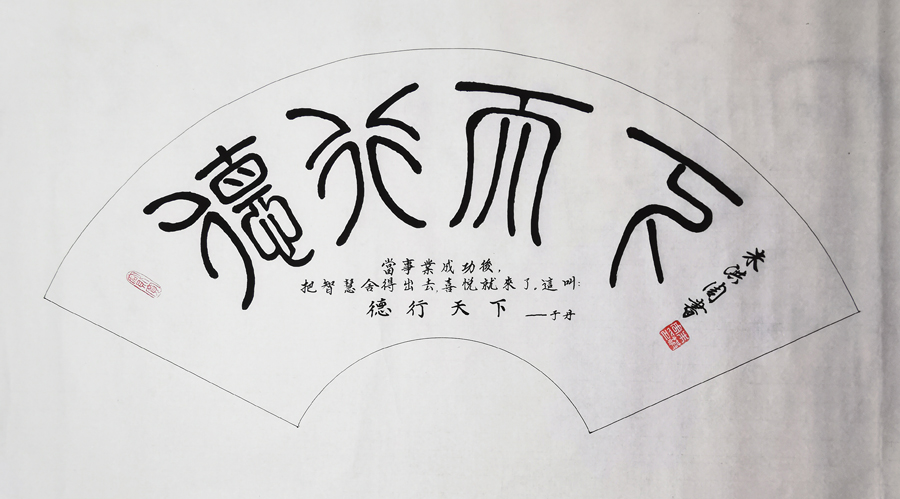 德行天下
當事業成功後，
把智慧舍得出去，喜悦就來了。這叫：
德行天下 ——于丹
洪周書